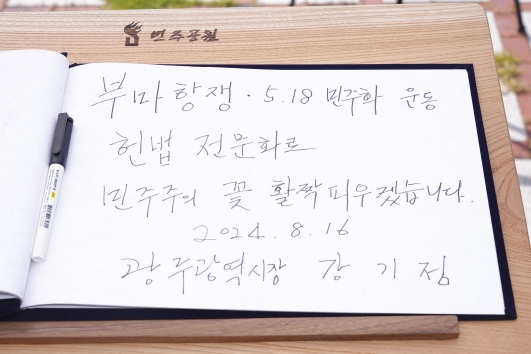 민주공원
부마항쟁·5.18 민주화 운동
헌법 전문화로
민주주의 꽃 활짝 피우겠습니다.
2024. 8. 16
광주광역시장 강기정